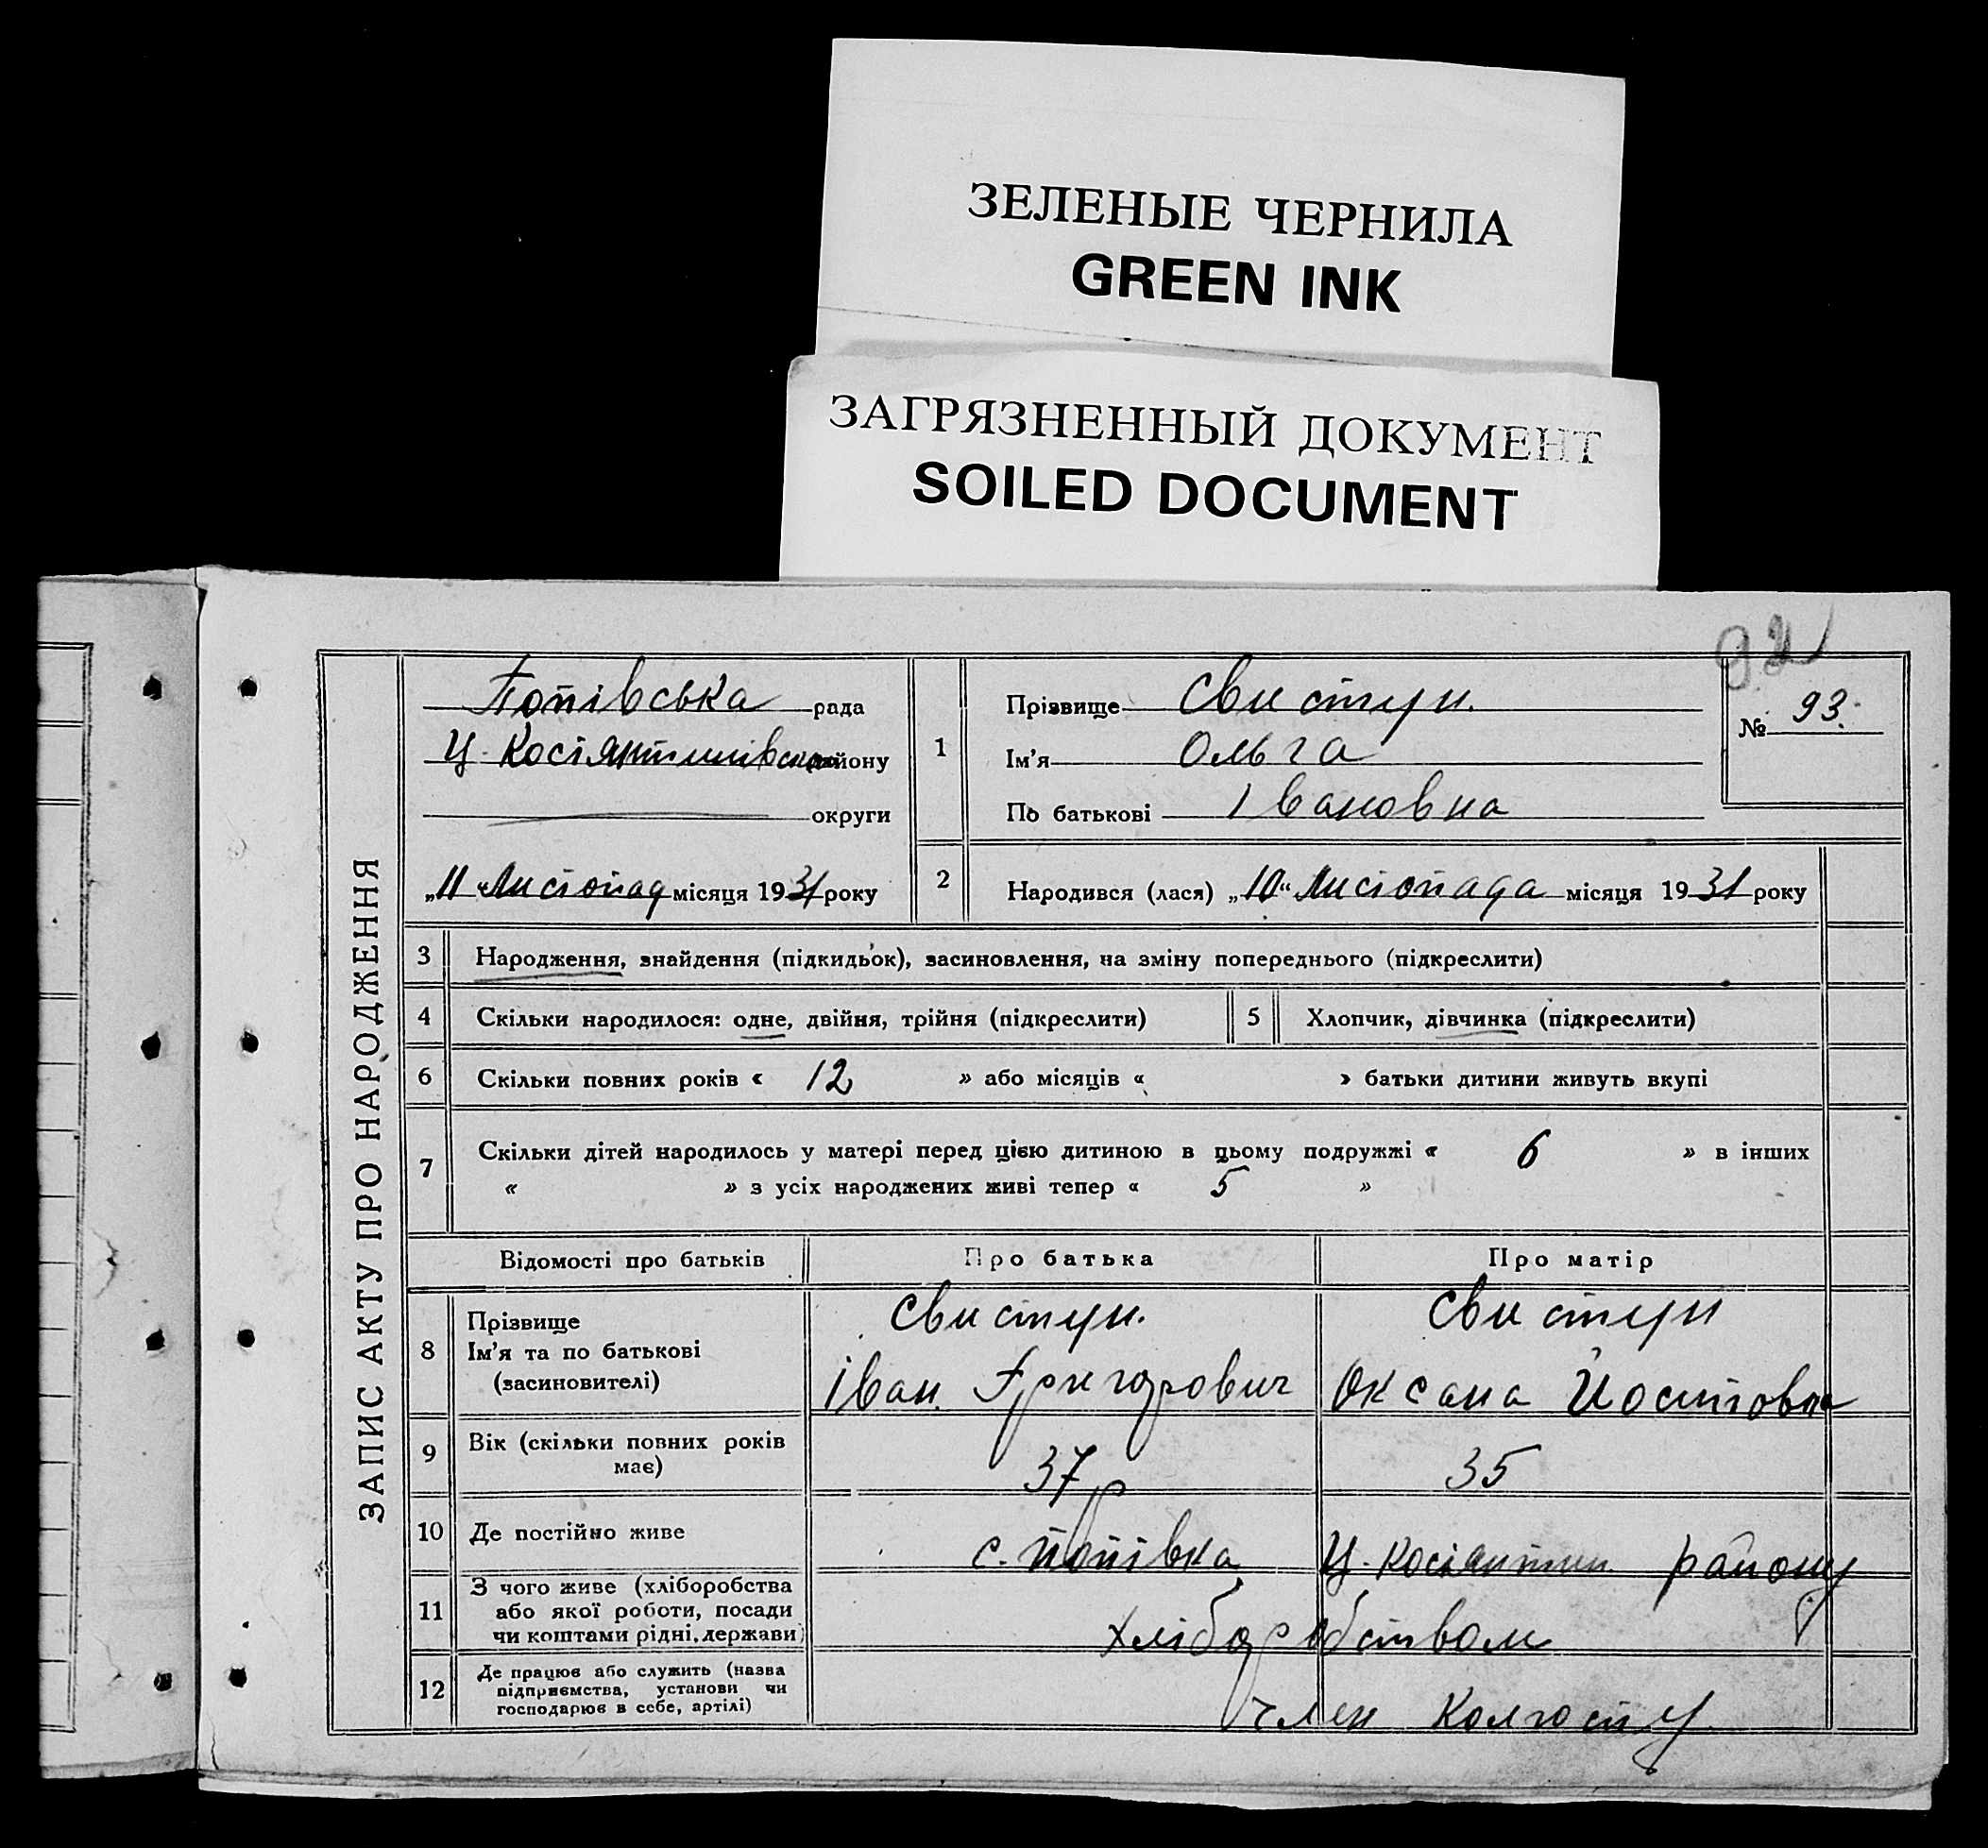 ЗЕЛЕНЫЕ ЧЕРНИЛА
GREEN INK
ЗАГРЯЗНЕННЫЙ ДОКУМЕНТ
SOILED DOCUMENT
ЗАПИС АКТУ ПРО НАРОДЖЕННЯ
Попівська рада
Ц. Костянтинівськ району
округи
„11 Листопад місяця 1931 року
1
Прізвище Свистун.
Ім'я Ольга
По батькові Івановна
№ 93.
2
Народився (лася) „10“ Листопада місяця 1931 року
3 Народження, знайдення (підкидьок), засиновлення, на зміну попереднього (підкреслити)
4 Скільки народилося: одне, двійня, трійня (підкреслити) 5 Хлопчик, дівчинка (підкреслити)
6 Скільки повних років « 12 » або місяців « » батьки дитини живуть вкупі
7 Скільки дітей народилось у матері перед цією дитиною в цьому подружжі « 6 » в інших
« » з усіх народжених живі тепер « 5 »
Відомості про батьків Про батька Про матір
8 Прізвище
Ім'я та по батькові
(засиновителі)
Свистун.
Іван. Григорович
Свистун
Оксана Йосиповна
9 Вік (скільки повних років
має)
37 р
35
10 Де постійно живе с. Попівка Ц. Костянтин. району
11 З чого живе (хліборобства
або якої роботи, посади
чи коштами рідні, держави)
хліборобством
12 Де працює або служить (назва
підприємства, установи чи
господарює в себе, артілі)
член Колгоспу